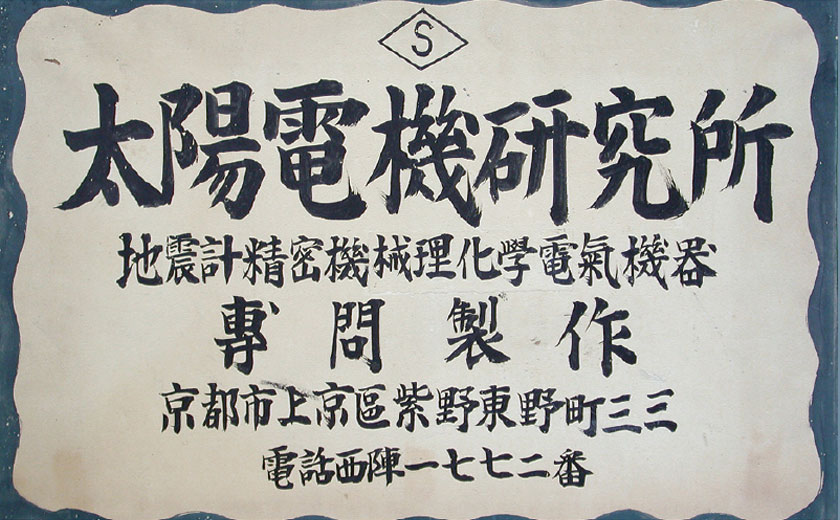 S
太陽電機研究所
地震計精密機械理化學電氣機器
專問製作
京都市上京區紫野東野町三三
電話西陣一七七二番